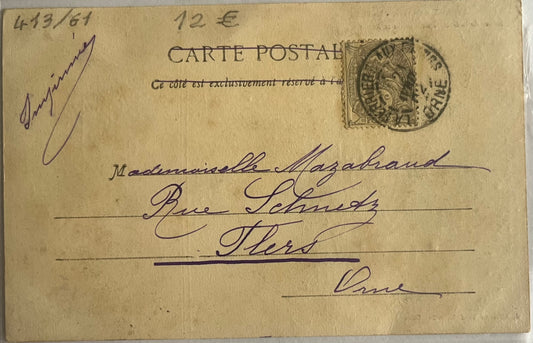 413/61
12 €
CARTE POSTALE
Ce côté est exclusivement réservé à l'a
Imprimé
ORNE
Mademoiselle Mazabraud
Rue Schnetz
Flers
Orne